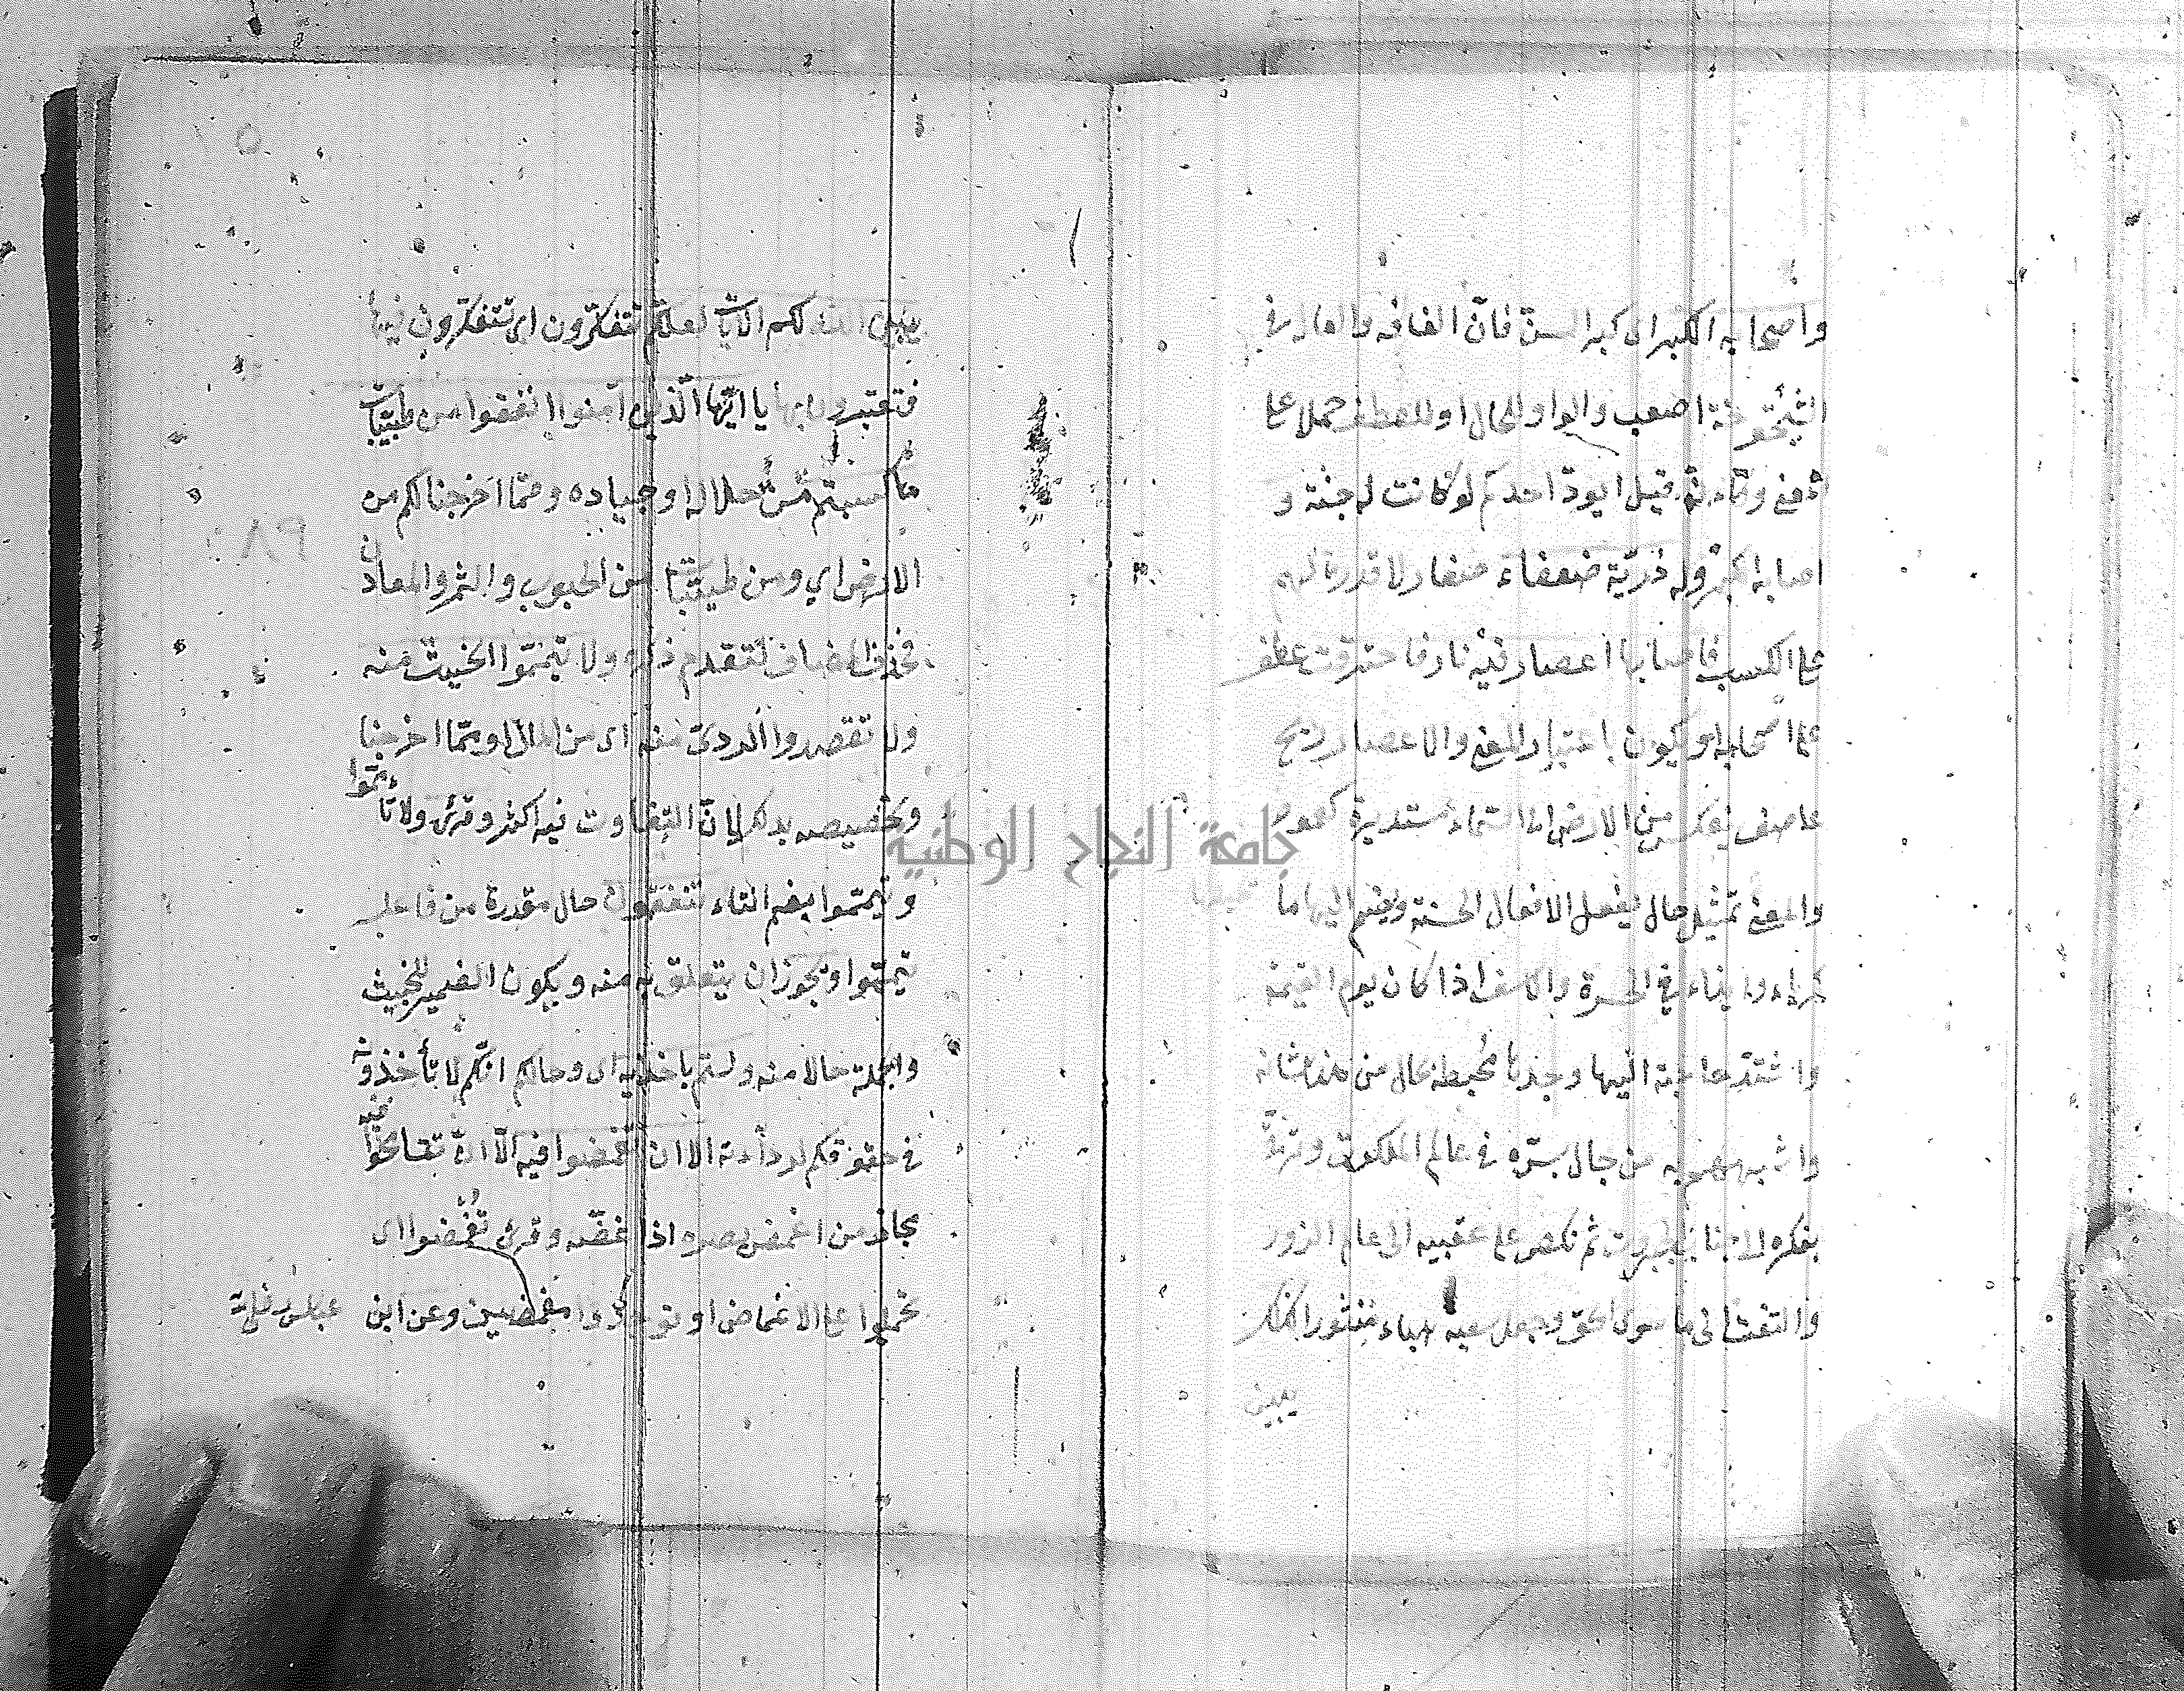 واصابه الكبر اى كبر السن فان الفاقه والعالة فى
الشيخوخة اصعب والواو للحال او للعطف حملا على
المعنى وكانه قيل ايود احدكم لو كانت له جنة و
اصابه الكبر وله ذرّية ضعفاء صغار لا قدرة لهم
على الكسب فاصابها اعصار فيه نار فاحترقت عطف
على اصابه او تكون باعتبار المعنى والاعصار ريح
عاصف تنعكس من الارض الى السماء مستديرة كعمود
والمعنى تمثيل حال من يفعل الافعال الحسنة ويضم اليها ما يحبطها
كرياء وايذاء فى الحسرة والاسف اذا كان يوم القيمة
واشتدّ حاجته اليها وجدها محبطة بحال من هذا شانه
واشبههم به من جال بسرّه فى عالم الملكوت وترقّى
بفكره الى جناب الجبروت ثم نكص على عقبيه الى عالم الزور
والتفت الى ما سوى الحق وجعل سعيه هباء منثورا كذلك
يبين
يبين الله لكم الآيات لعلكم تتفكرون اى تتفكرون فيها
فتعتبرون بها يا ايّها الّذين آمنوا انفقوا من طيّبات
ما كسبتم من حلاله او جياده وممّا اخرجنا لكم من
الارض اي ومن طيبات ما من الحبوب والثمر والمعادن
فحذف المضاف لتقدم ذكره ولا تيمّموا الخبيث منه
ولا تقصدوا الردىّ منه اى من المال او ممّا اخرجنا
وتخصيصه بذلك لانّ التفاوت فيه اكثر وقرئ ولا تأمّموا
وتيمّموا بضم التاء تنفقون حال مقدرة من فاعل
تيمّموا ويجوز ان يتعلق به منه ويكون الضمير للخبيث
والجملة حالا منه ولستم باخذيه اى وحالكم انكم لا تأخذونه
فى حقوقكم لرداءته الا ان تغمضوا فيه الّا ان تتسامحوا فيه
مجاز من اغمض بصره اذا غضّه وقرئ تُغمَضوا اى
تحملوا على الاغماض او توجدوا مغمضين وعن ابن عباس